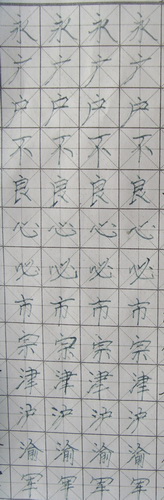 永永永永
广广广广
户户户户
不不不不
良良良良
心心心心
必必必必
市市市市
宗宗宗宗
津津津津
沪沪沪沪
渝渝渝渝
军军军军